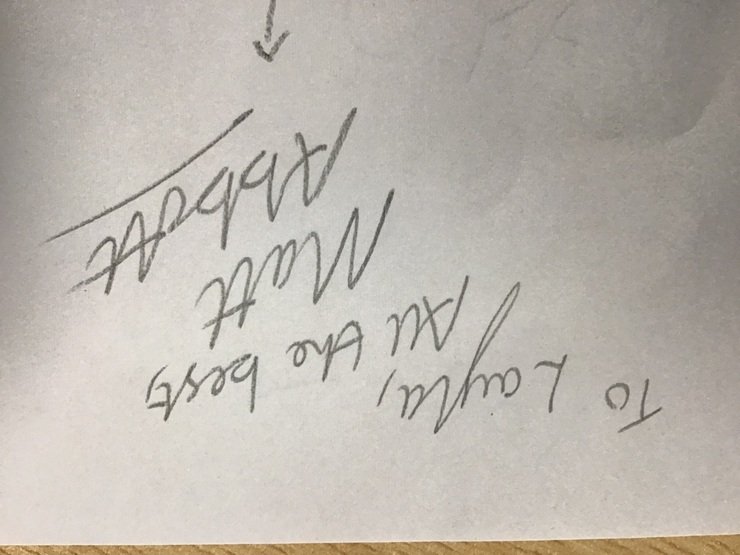 To Layla,
All the best,
Matt
Abbott